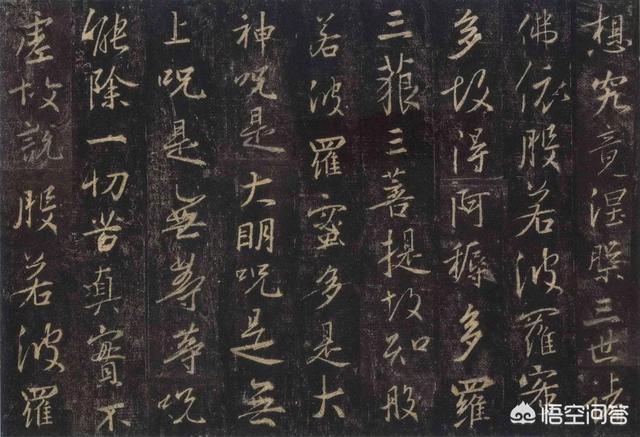 想究竟涅槃三世諸
佛依般若波羅蜜
多故得阿耨多羅
三藐三菩提故知般
若波羅蜜多是大
神呪是大明呪是無
上呪是無等等呪
能除一切苦真實不
虛故說般若波羅
悟空问答